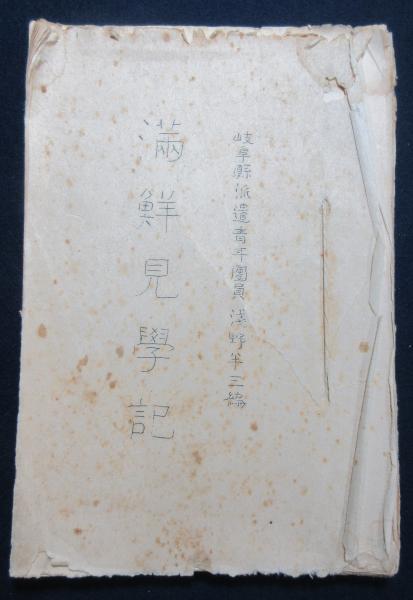 岐阜縣派遣青年團員 淺野半三編
滿鮮見學記